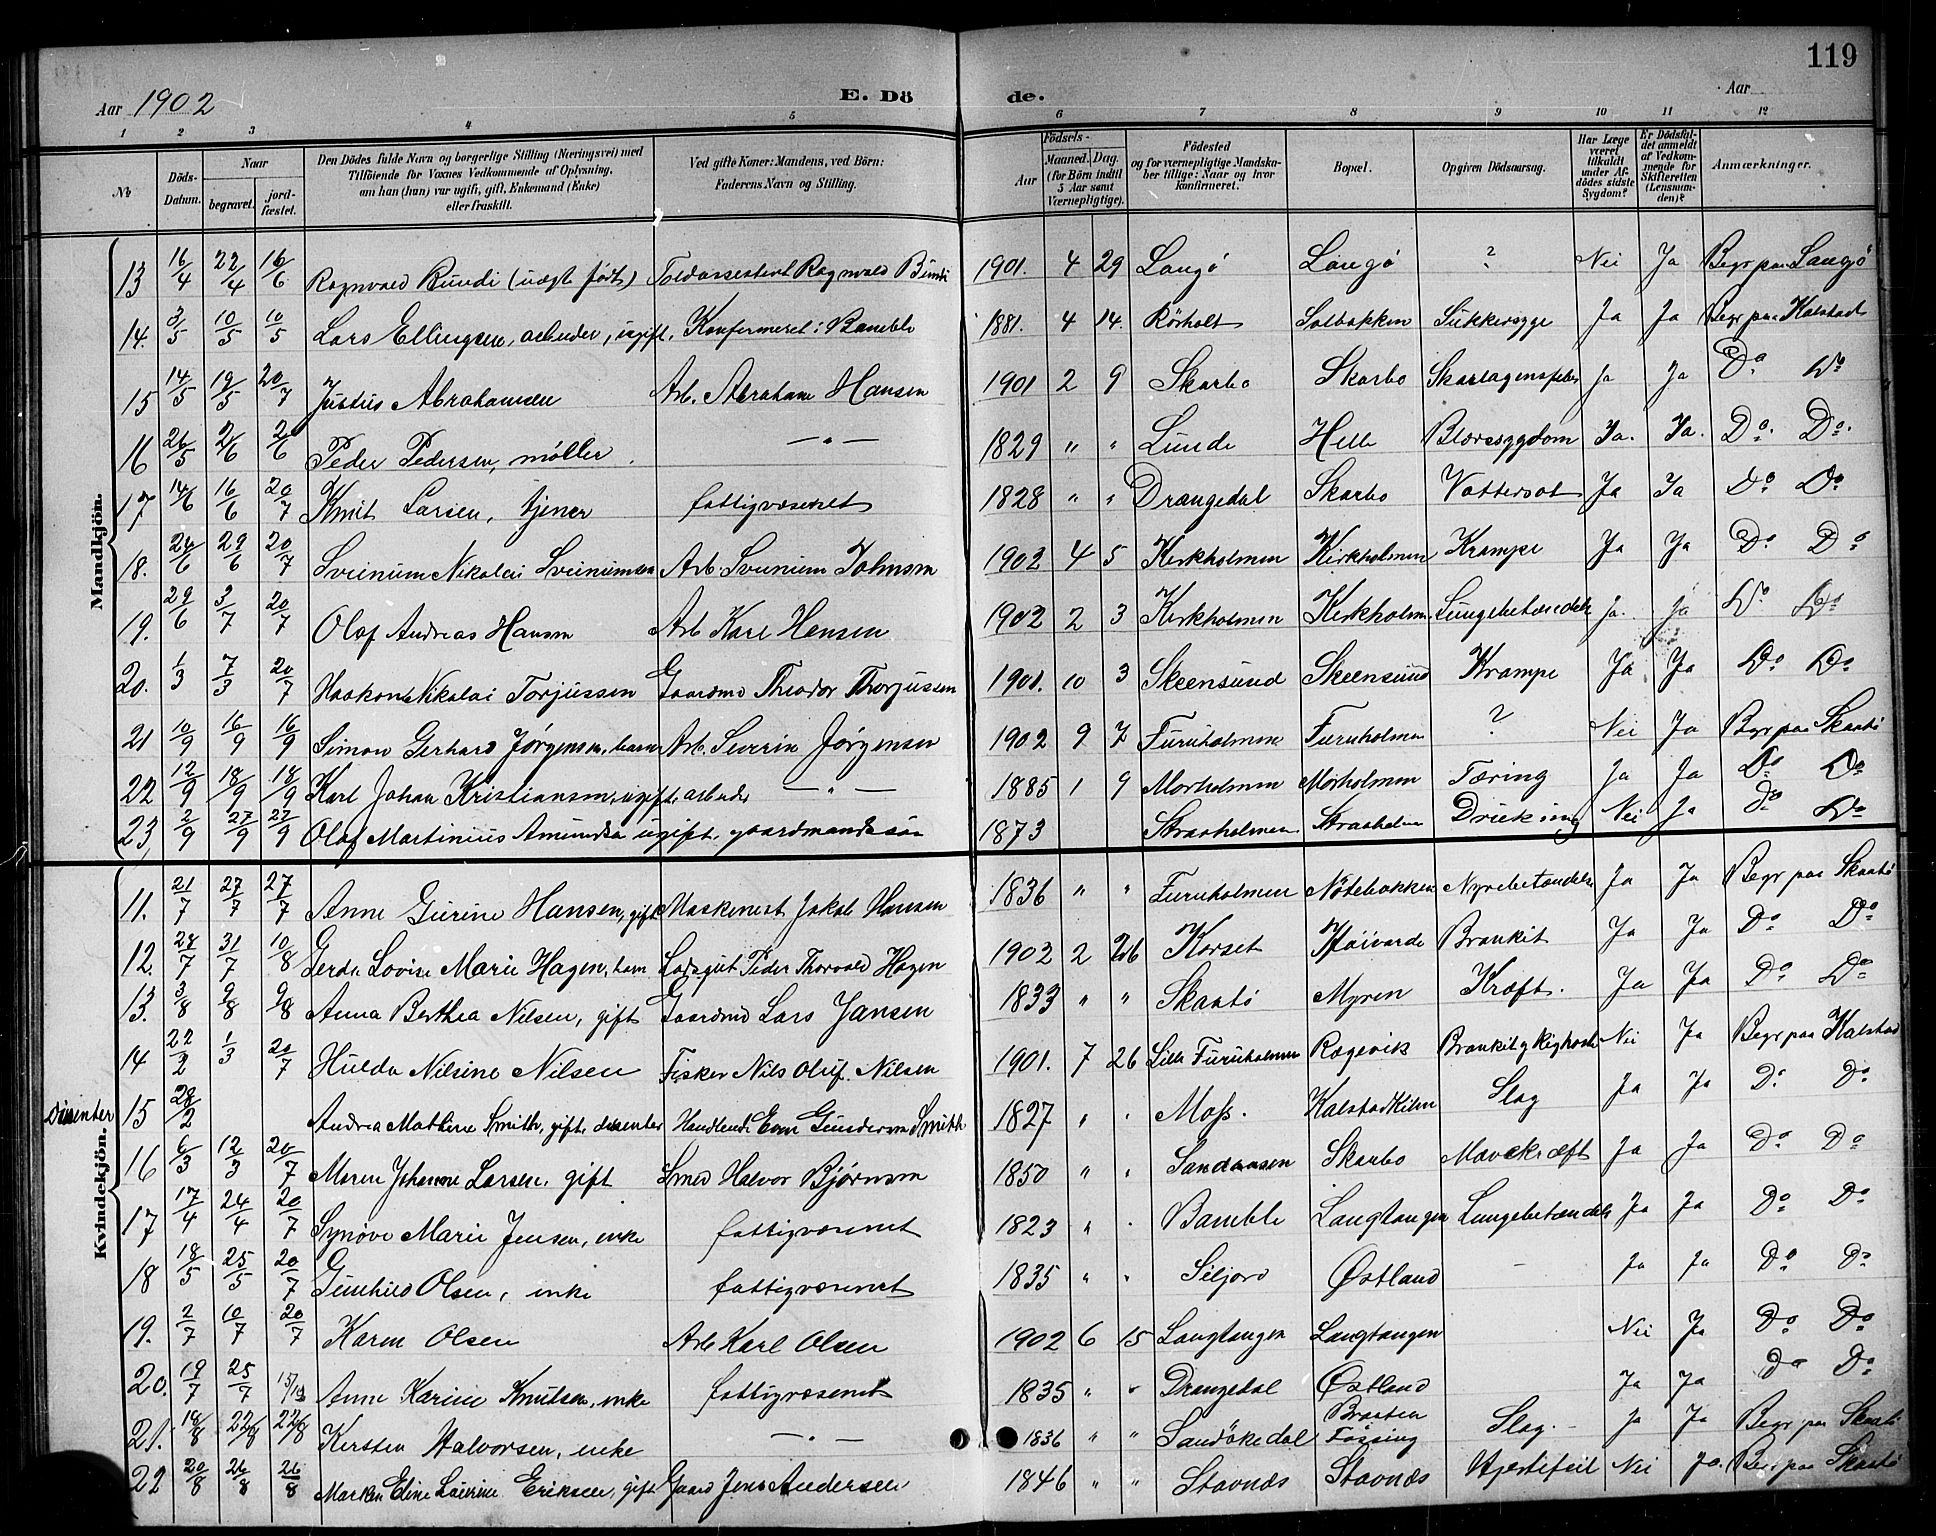 119
Aar 1902 E. Dö de. Aar
1 2 3 4 5 6 7 8 9 10 11 12
No Döds-Datum. Naar begravet. jordfæstet. Den Dödes fulde Navn og borgerlige Stilling (Næringsvei) med Tilföiende för Voxnes Vedkommende af Oplysning, om han (hun) var ugift, gift, Enkemand (Enke) eller fraskilt. Ved gifte Koner: Mandens, ved Börn: Faderens Navn og Stilling. Födsels- Aar Maaned. Dag. (for Börn indtil 5 Aar samt Værnepligtige). Födested og for værnepligtige Mandskaber tillige: Naar og hvor konfirmeret. Bopæl. Opgiven Dödsaarsag. Har Læge været tilkaldt under Afdödes sidste Sygdom? Er Dödsfaldet anmeldt af Vedkommende for Skifteretten (Lensmanden)? Anmærkninger.
Mandkjön.
13 16/4 22/4 16/6 Ragnvald Bundi (uægte født) Toldassistent Ragnvald Bundi 1901. 4 29 Langö Langö ? Nei Ja Begr paa Langö
14. 3/5 10/5 10/5 Lars Ellingsen, arbeider, ugift, Konfirmeret i Bamble 1881. 4 14. Rörholt Solbakken Sukkersyge Ja Ja Begr paa Kalstad
15 14/5 19/5 20/7 Justus Abrahamsen Arb. Abraham Hansen 1901 2 9 Skarbo Skarbo Skarlagensfeber Ja Ja Do Do
16 26/5 2/6 2/6 Peder Pedersen, møller. — " — 1829 " " Lunde Helle Blæresygdom Ja. Ja. Do. Do.
17 14/6 16/6 20/7 Knut Larsen, tjener fattigvæsenet 1828 " " Drangedal Skarbo Vattersot Ja Ja Do Do
18. 24/6 29/6 20/7 Sveinum Nikolai Sveinumsen Arb. Sveinum Johnsen 1902 4 5 Kirkholmen Kirkholmen Krampe Ja Ja Do Do
19. 29/6 3/7 20/7 Olaf Andreas Hansen Arb Karl Hansen 1902 2 3 Kirkholmen Kirkholm. Lungebetændelse Ja. Ja Do Do
20. 1/3 7/3 20/7 Haakon Nikolai Torjussen Gaardmd Theodor Thorjussen 1901. 10 3 Skeensund Skeensund Krampe Ja Ja Do Do
21 10/9 16/9 16/9 Simon Gerhard Jørgensen, barn Arb. Severin Jørgensen 1902 9 7 Furuholmen Furuholmen ? Nei Ja Begr paa Skaatö
22 12/9 18/9 18/9 Karl Johan Kristiansen, ugift, arbeider — " — 1885 1 9 Morholmen Morholmen Tæring Ja Ja Do Do
23 2/9 27/9 27/9 Olaf Martinius Amundsen ugift, gaardmandssøn 1873 Straaholmen Straaholm Drukning Nei Ja Do Do
Kvindekjön.
11. 21/7 27/7 27/7 Anne Gurine Hansen, gift Maskinist Jakob Hansen 1836 " " Furuholmen Nötebakken Nyrebetændelse Ja Ja Begr paa Skaatö
12. 28/7 31/7 10/8 Gerda Lovise Marie Hagen, barn Losgut Peder Thorvald Hagen 1902 2 26 Korset Brankit Ja Ja Do Do
13. 3/8 9/8 9/8 Anna Berthea Nilsen, gift Gaardmd Lars Jansen 1833 " " Skaatö Myren Kræft. Ja Ja Do Do
14 22/2 1/3 20/7 Hulda Nilsine Nilsen Fisker Nils Oluf. Nilsen 1901. 7 26 Lille Furuholmen Rögevik Brankit og Kighoste Nei Ja Begr paa Kalstad
Dissenter 15 28/2 Andrea Mathine Smith, gift, dissenter Handlende Even Gundersen Smith 1827 " . Moss. Kalstadkilen Slag Ja Ja Do Do
16 6/3 12/3 20/7 Maren Johanne Larsen, gift Smed Halvor Bjørnsen 1850 " " Sandaasen Skarbo Mavekræft Ja Ja Do Do
17 17/4 24/4 20/7 Synöve Marie Jensen, enke fattigvæsenet 1823 " . Bamble Langtangen Lungebetændelse Ja Ja Do Do
18 18/5 25/5 20/7 Gunhild Olsen, enke fattigvæsenet 1835 " " Siljord Østland — Ja Ja Do Do
19. 2/7 10/7 20/7 Karen Olsen Arb Karl Olsen 1902 6 15 Langtangen Langtangen Nei Ja Do Do
20. 19/7 25/7 15/10 Anne Karine Knutsen, enke fattigvæsenet 1835 " " Drangedal Østland Ja Ja Do Do
21. 18/8 22/8 22/8 Kirsten Halvorsen, enke — " — 1836 " " Sandökedal Braaten Fossing Slag. Ja Ja Begr paa Skaatö
22 20/8 26/8 26/8 Maren Eline Laurine Eriksen, gift Gaard Jens Andersen 1846 " " Stavnæs Stavnæs Hjertefeil Nei Ja. Begr paa Skaatö